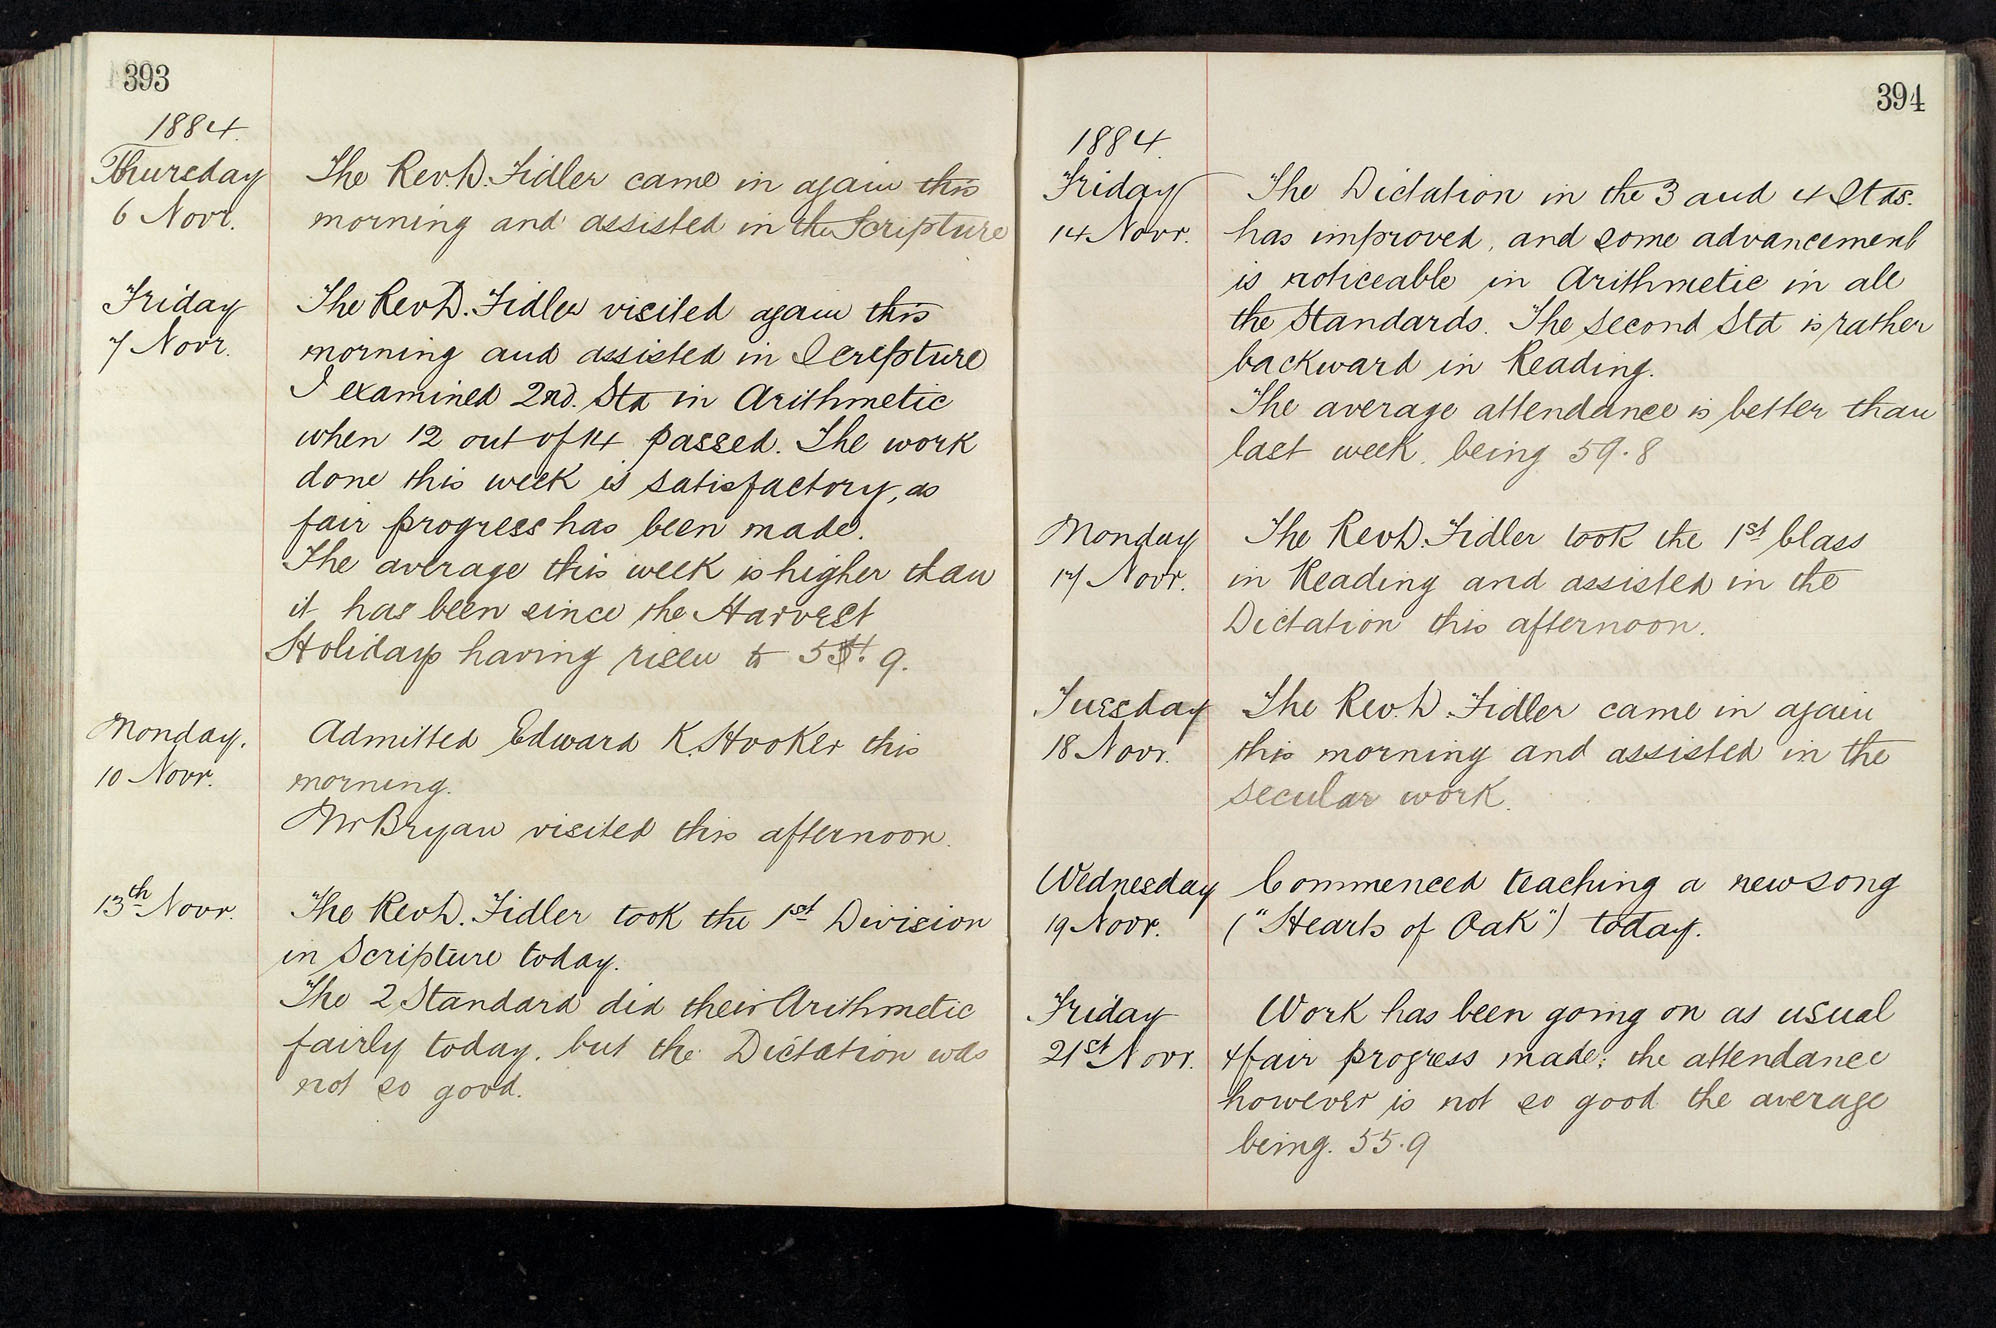 393
1884.
Thursday
6 Novr.
The Rev. D. Fidler came in again this
morning and assisted in the Scripture
Friday
7 Novr.
The Rev D. Fidler visited again this
morning and assisted in Scripture
I examined 2nd. Std in Arithmetic
when 12 out of 14 passed. The work
done this week is satisfactory, as
fair progress has been made.
The average this week is higher than
it has been since the Harvest
Holidays having risen to 9.
Monday.
10 Novr.
Admitted Edward K. Hooker this
morning.
Mr Bryan visited this afternoon.
13th Novr.
The Rev D. Fidler took the 1st Division
in Scripture today.
The 2 Standard did their Arithmetic
fairly today, but the Dictation was
not so good.
394
1884.
Friday
14 Novr.
The Dictation in the 3 and 4 Stds.
has improved, and some advancement
is noticeable in Arithmetic in all
the Standards. The second Std is rather
backward in Reading.
The average attendance is better than
last week, being 59.8
Monday
17 Novr.
The Rev D. Fidler took the 1st Class
in Reading and assisted in the
Dictation this afternoon.
Tuesday
18 Novr.
The Rev. D. Fidler came in again
this morning and assisted in the
secular work.
Wednesday
19 Novr.
Commenced teaching a new song
("Hearts of Oak") today.
Friday
21st Novr.
Work has been going on as usual
& fair progress made; the attendance
however is not so good the average
being. 55.9